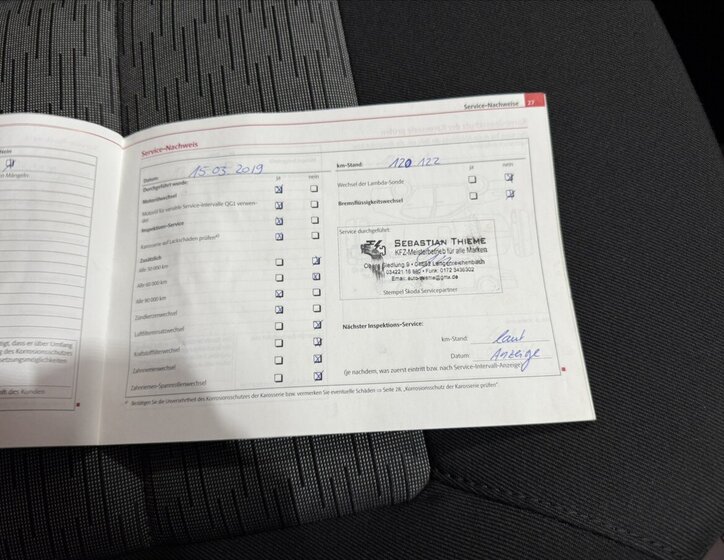 Service-Nachweise 27
Nein
n Mängeln:
tigt, dass er über Umfang
ng des Korrosionsschutzes
etzungsmöglichkeiten
ft des Kunden
Service-Nachweis
Datum: 15.03.2019
ja nein
Durchgeführt wurde:
Motorölwechsel
Motoröl für variable Service-Intervalle QG1 verwen-
det
Inspektions-Service
Karosserie auf Lackschäden prüfen
Zusätzlich
Alle 30 000 km
Alle 60 000 km
Alle 90 000 km
Zündkerzenwechsel
Luftfiltereinsatzwechsel
Kraftstofffilterwechsel
Zahnriemenwechsel
Zahnriemen-Spannrollenwechsel
km-Stand: 120 122
ja nein
Wechsel der Lambda-Sonde
Bremsflüssigkeitswechsel
Service durchgeführt:
SEBASTIAN THIEME
KFZ-Meisterbetrieb für alle Marken
Siedlung 9 • 04862 Langenreichenbach
Funk: 0172 3436302
Stempel Škoda Servicepartner
Nächster Inspektions-Service:
km-Stand: laut
Datum: Anzeige
(je nachdem, was zuerst eintritt bzw. nach Service-Intervall-Anzeige)
Bestätigen Sie die Unversehrtheit des Korrosionsschutzes der Karosserie bzw. vermerken Sie eventuelle Schäden ⇒ Seite 28, „Korrosionsschutz der Karosserie prüfen".